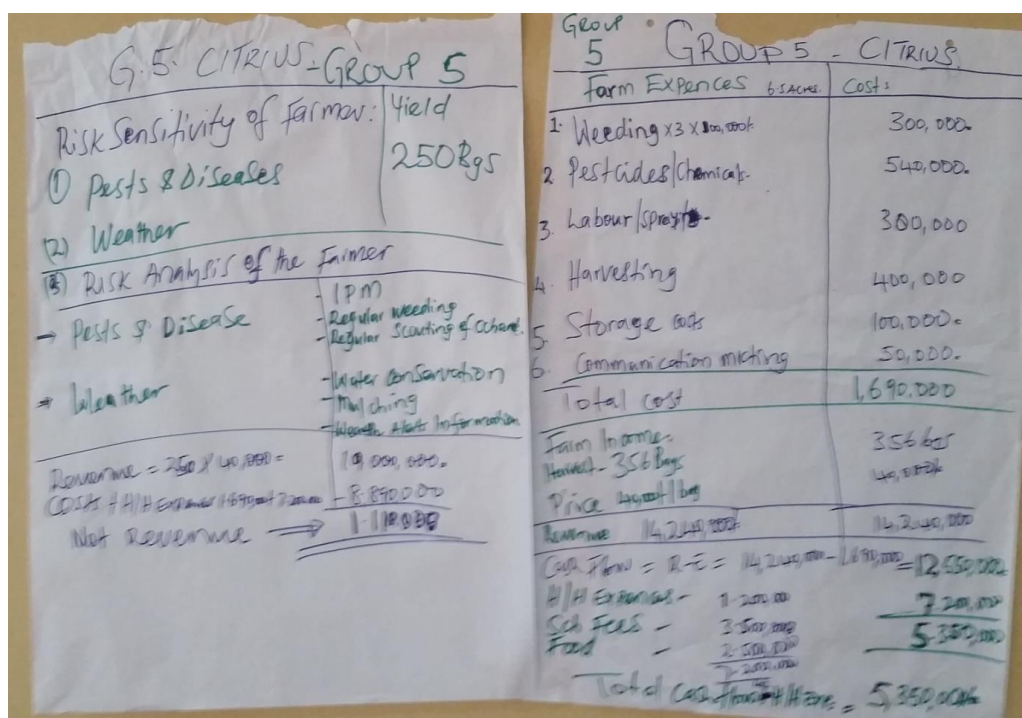 G.5. CITRIUS - GROUP 5
Risk Sensitivity of Farmer:
Yield
250 Bgs
(1) Pests & Diseases
(2) Weather
(3) Risk Analysis of the Farmer
→ Pests & Disease
- IPM
- Regular weeding
- Regular Scouting of
→ Weather
- Water Conservation
- Mulching
- Alert Information
Revenue = 250 x 40,000 =
COSTS + H/H Expenses
- 8.890.000
Net Revenue ⇒
GROUP
5
GROUP 5 - CITRIUS
Farm Expences 6.5 Acres. Costs
1. Weeding x3 x 100,000/= 300,000=
2. Pesticides/Chemicals- 540,000=
3. Labour/ 300,000
4. Harvesting 400,000
5. Storage costs 100,000=
6. Communication 50,000=
Total cost 1,690.000
Farm Income. 356 bgs
Harvest - 356 Bags 40,000/=
Price 40,000/ bag
Revenue 14,240,000 14,240,000
Cash Flow = R-E = 14,240,000 - 1,690,000 = 12,550,000
H/H Expenses - 7,200,000
Sch Fees - 3,500,000 5,350,000
Food - 2,500,000
7,200,000
Total Cash = 5,350,000